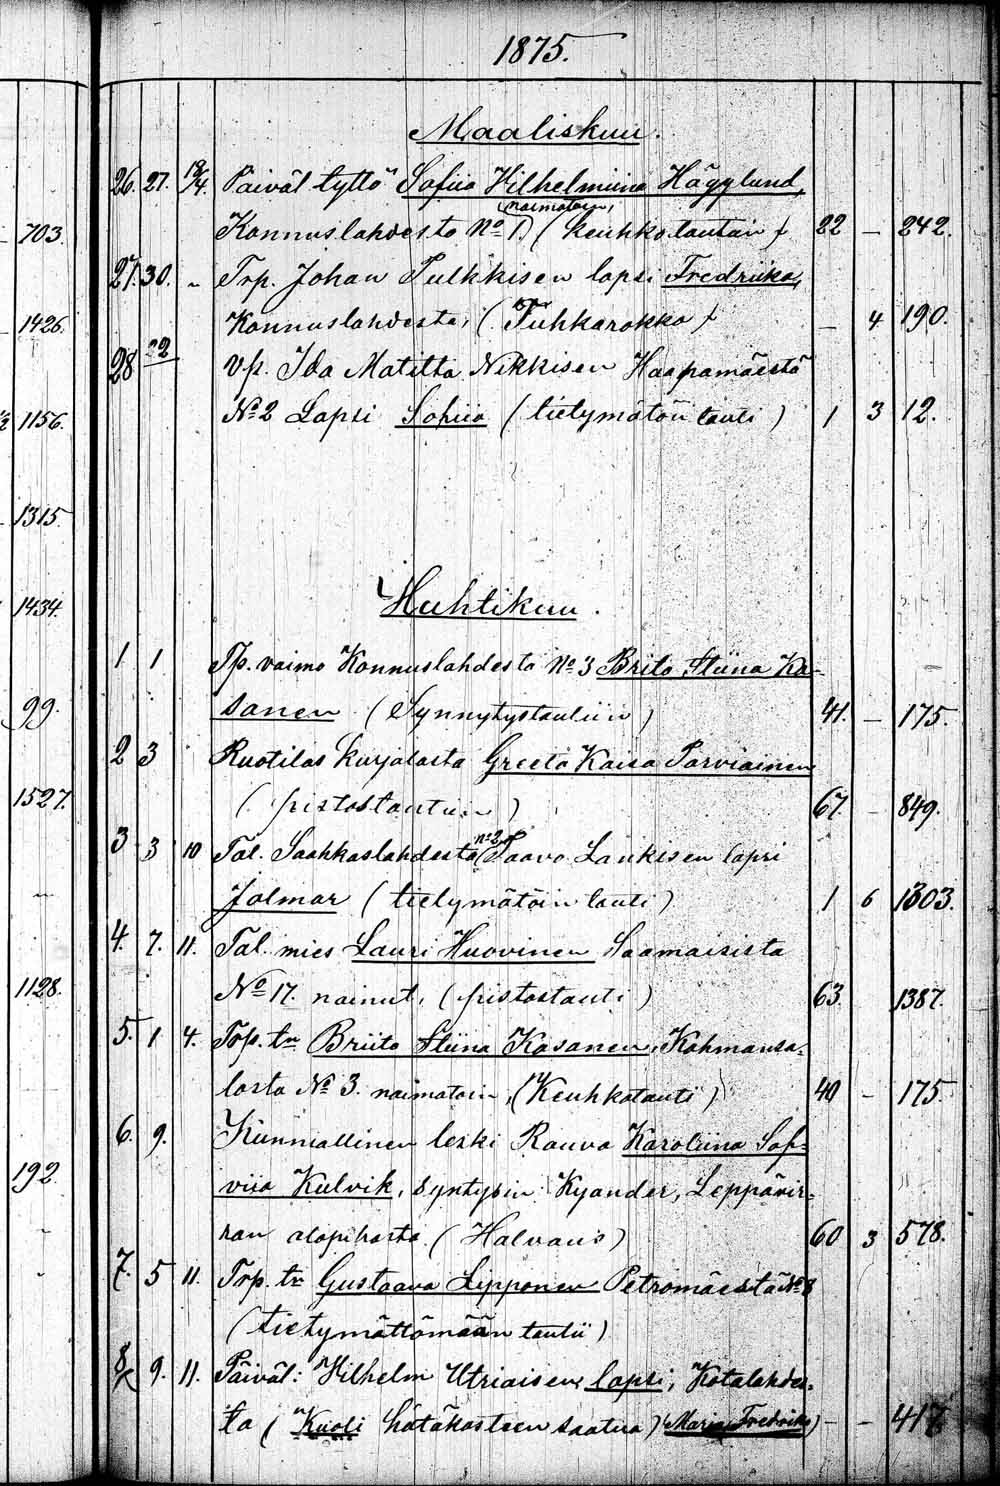 1875.
Maaliskuu.
26. 27. 18/4. Päiväl. tyttö Sofiia Vilhelmiina Hägglund,
naimatoin,
703. Konnuslahdesta No 1. (keuhkotautiin) 22 — 242.
27. 30. " Trp. Johan Pulkkisen lapsi Fredriika,
1426. Konnuslahdesta, (Tuhkarokko) — 4 190.
28 22 Vp. Ida Matilta Nikkisen Haapamäestä
1156. No 2 Lapsi Sohvia (tietymätöin tauti) 1 3 12.
1315.
1434. Huhtikuu.
1 1 Tp. vaimo Konnuslahdesta No 3 Brita Stiina Ka-
99. sanen (Synnytystautiin) 41. — 175.
2 3 Ruotilas Kurjalasta Greeta Kaisa Parviainen
1527. (pistostautiin) 67. — 849.
no 2
3 3 10 Tal. Saahkaslahdesta Paavo Laukisen lapsi
Jalmar (tietymätöin tauti) 1 6 1303.
4. 7. 11. Tal. mies Lauri Huovinen Saamaisista
1128. No 17. nainut, (pistostauti) 63. 1387.
5. 1 4. Trp. tr Briita Stiina Kasanen, Kohmansa-
losta No 3. naimatoin, (Keuhkotauti) 40 — 175.
6. 9. Kunniallinen leski Rouva Karoliina Sof-
192. viia Kulvik, syntysin Kyander, Leppävir-
ran alapihasta (Halvaus) 60 3 578.
7. 5 11. Trp. tr Gustaava Lipponen Petromäestä No 8
(tietymättömään tautii)
8 9. 11. Päiväl: Vilhelm Utriaisen lapsi, Kotalahdes-
ta ("Kuoli hätäkasteen saatua) (Maria Fredrika) — — 417